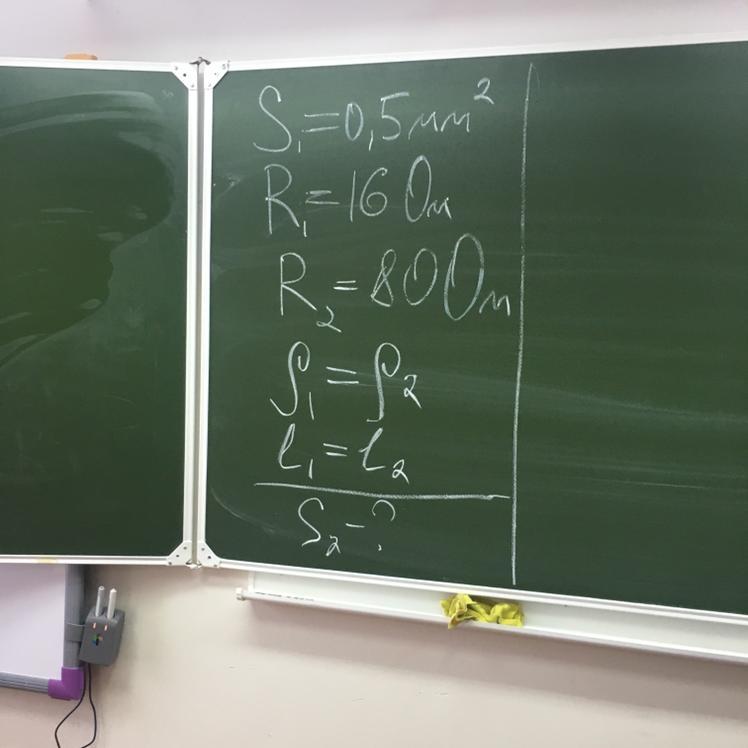 S₁=0,5мм²
R₁=16 Ом
R₂=80 Ом
ρ₁=ρ₂
l₁=l₂
S₂-?